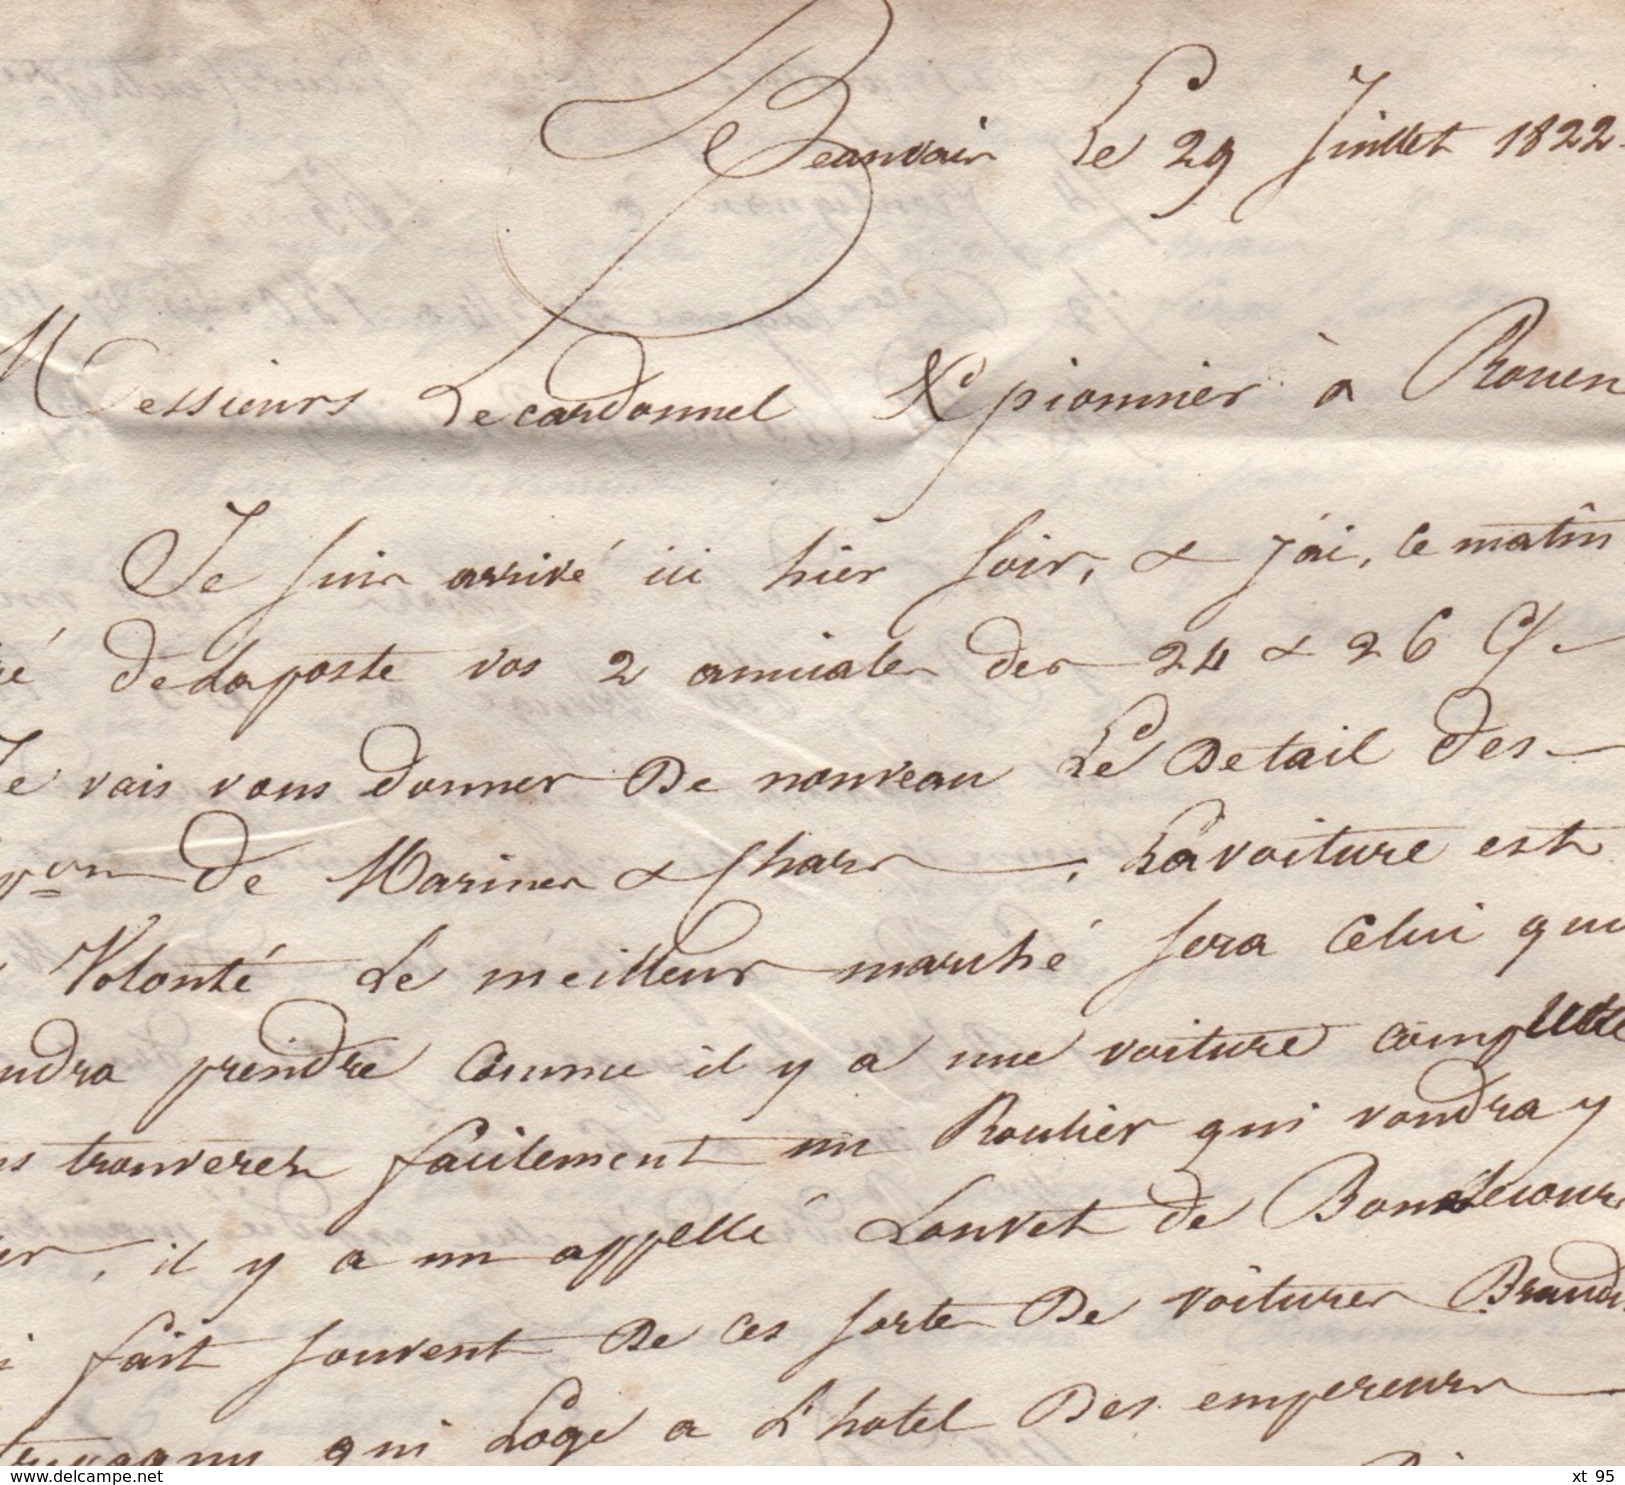 Beauvais Le 29 Juillet 1822
Messieurs Lecardonnel & pionnier à Rouen
Je suis arrivé ici hier soir, & j'ai, ce matin
ré de la poste vos 2 amicales des 24 & 26 Ct
Je vais vous donner De nouveau Le Detail des
von de Marines & Chars, La voiture est
Volonté Le meilleur marché sera Celui qui
ndra prendre Comme il y a une voiture complette
us trouverez facilement un Roulier qui voudra y
er, il y a un appellé Louvet de
i fait souvent De ces sortes De vôitures
qui Loge a L'hotel Des empereurs
www.delcampe.net
xt 95